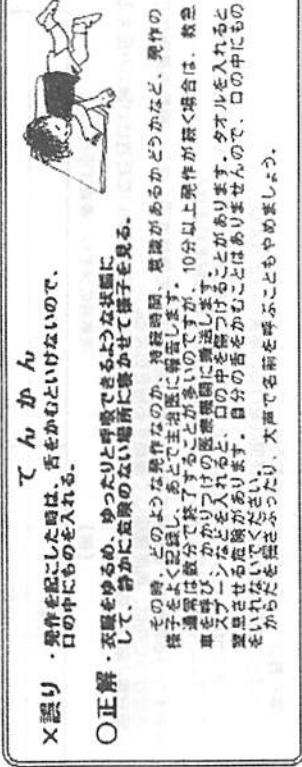 てんかん
×誤り ・発作を起こした時は、舌をかむといけないので、
口の中にものを入れる。
○正解 ・衣服をゆるめ、ゆったりと呼吸できるような状態に
して、静かに危険のない場所に寝かせて様子を見る。
その時、どのような発作なのか、持続時間、意識があるかどうかなど、発作の
様子をよく記録し、あとで主治医に報告します。
通常は数分で終了することが多いのですが、10分以上発作が続く場合は、救急
車を呼び、かかりつけの医療機関に搬送します。
スプーンなどを入れると、口の中を傷つけることがあります。タオルを入れると
窒息させる危険があります。自分の舌をかむことはありませんので、口の中にもの
をいれないでください。
からだを揺さぶったり、大声で名前を呼ぶこともやめましょう。